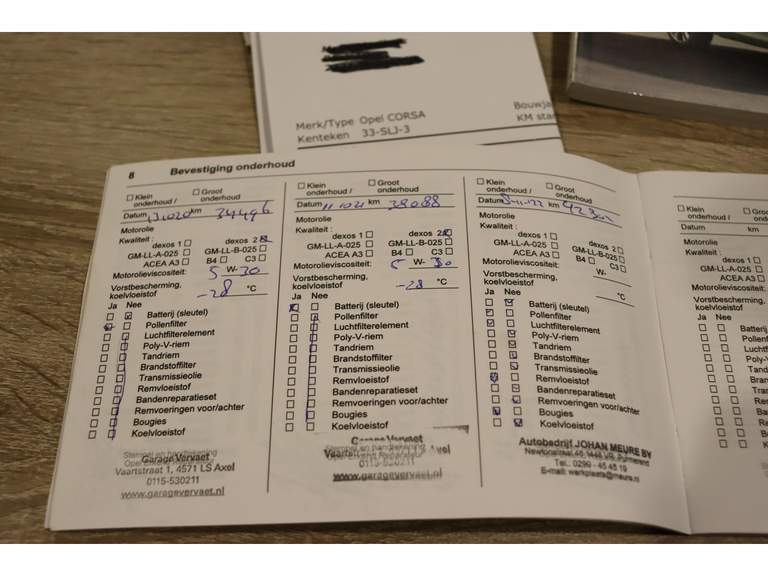 Merk/Type Opel CORSA
Kenteken 33-SLJ-3
Bouwja
KM sta
8 Bevestiging onderhoud
Klein onderhoud / Groot onderhoud
Datum km 34496
Motorolie
Kwaliteit :
dexos 1 dexos 2
GM-LL-A-025 GM-LL-B-025
ACEA A3 B4 C3
Motorolieviscositeit: 5 W-30
Vorstbescherming, koelvloeistof -28 °C
Ja Nee
Batterij (sleutel)
Pollenfilter
Luchtfilterelement
Poly-V-riem
Tandriem
Brandstoffilter
Transmissieolie
Remvloeistof
Bandenreparatieset
Remvoeringen voor/achter
Bougies
Koelvloeistof
Garage Vervaet
Vaartstraat 1, 4571 LS Axel
0115-530211
www.garagevervaet.nl
Klein onderhoud / Groot onderhoud
Datum 11 1021 km 38088
Motorolie
Kwaliteit :
dexos 1 dexos 2
GM-LL-A-025 GM-LL-B-025
ACEA A3 B4 C3
Motorolieviscositeit: 5 W-30
Vorstbescherming, koelvloeistof -28 °C
Ja Nee
Batterij (sleutel)
Pollenfilter
Luchtfilterelement
Poly-V-riem
Tandriem
Brandstoffilter
Transmissieolie
Remvloeistof
Bandenreparatieset
Remvoeringen voor/achter
Bougies
Koelvloeistof
Garage Vervaet
0115-530211
www.garagevervaet.nl
Klein onderhoud / Groot onderhoud
Datum km
Motorolie
Kwaliteit :
dexos 1 dexos 2
GM-LL-A-025 GM-LL-B-025
ACEA A3 B4 C3
Motorolieviscositeit: W-
Vorstbescherming, koelvloeistof °C
Ja Nee
Batterij (sleutel)
Pollenfilter
Luchtfilterelement
Poly-V-riem
Tandriem
Brandstoffilter
Transmissieolie
Remvloeistof
Bandenreparatieset
Remvoeringen voor/achter
Bougies
Koelvloeistof
Autobedrijf JOHAN MEURE BV
Tel.: 0299 - 45 45 19
E-mail: werkplaats@meure.nl
Klein onderhoud / Gro ond
Datum km
Motorolie
Kwaliteit :
dexos 1
GM-LL-A-025
ACEA A3
Motorolieviscositeit
Vorstbescherming, koelvloeistof
Ja Nee
Batterij
Pollenf
Luchtf
Poly-V
Tandr
Bran
Tran
Rem
Ban
Rem
Bou
Koe